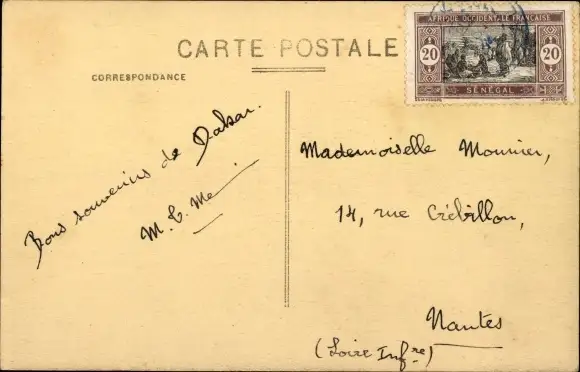 CARTE POSTALE
CORRESPONDANCE
Bons souvenirs de Dakar.
AFRIQUE OCCIDENTALE FRANÇAISE
20 20
SÉNÉGAL
Mademoiselle
14, rue Crébillon,
Nantes
(Loire Infre)